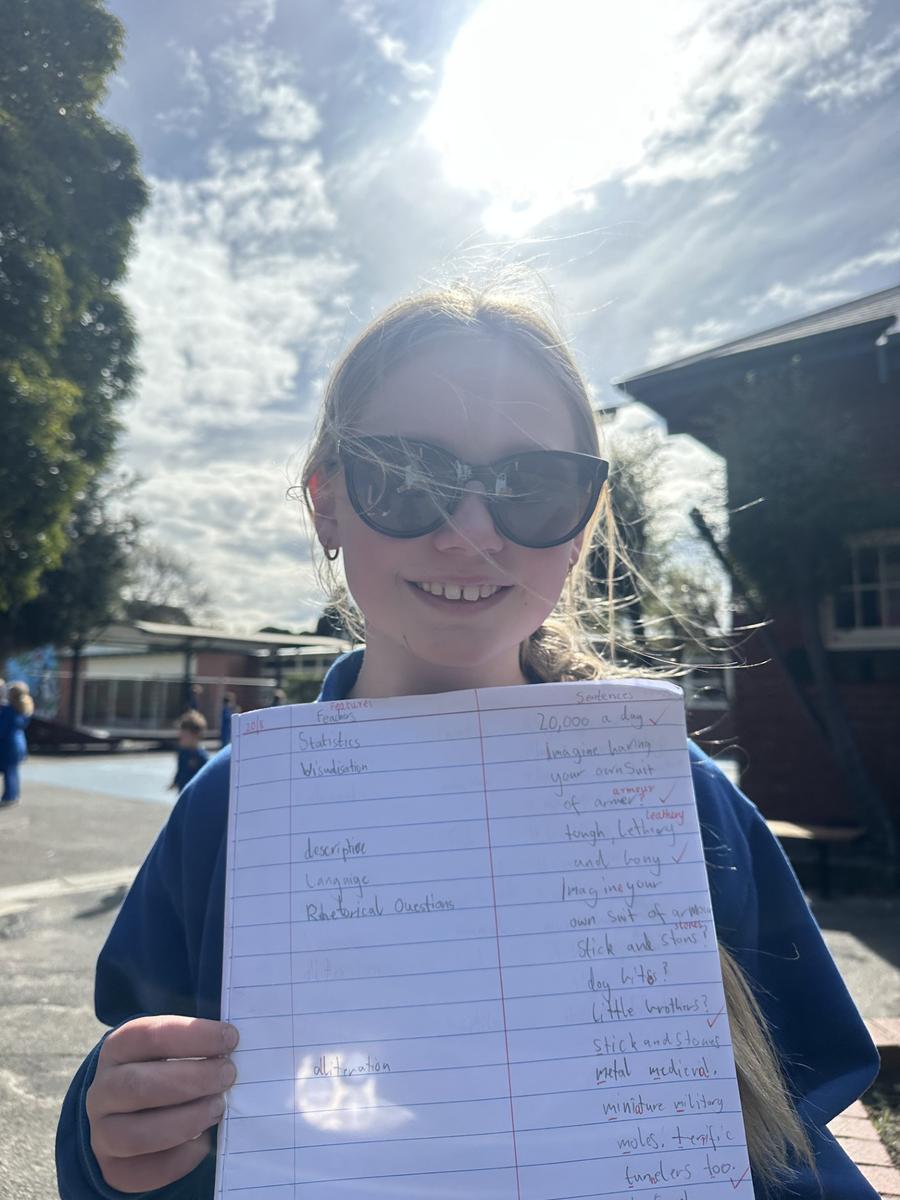 20/8 Features Sentences
Feachers 20,000 a day
Statistics Imagine having
Visudisation your own Suit
armour
of armer?
leathery
tough, Lethery
descriptive and bony
Languige Imagine your
Rhetorical Questions own suit of armour
stones
stick and stons?
dog bites?
Little brothers?
stick and stones
alliteration metal medieval,
miniature military
moles. terrific
tunders too.